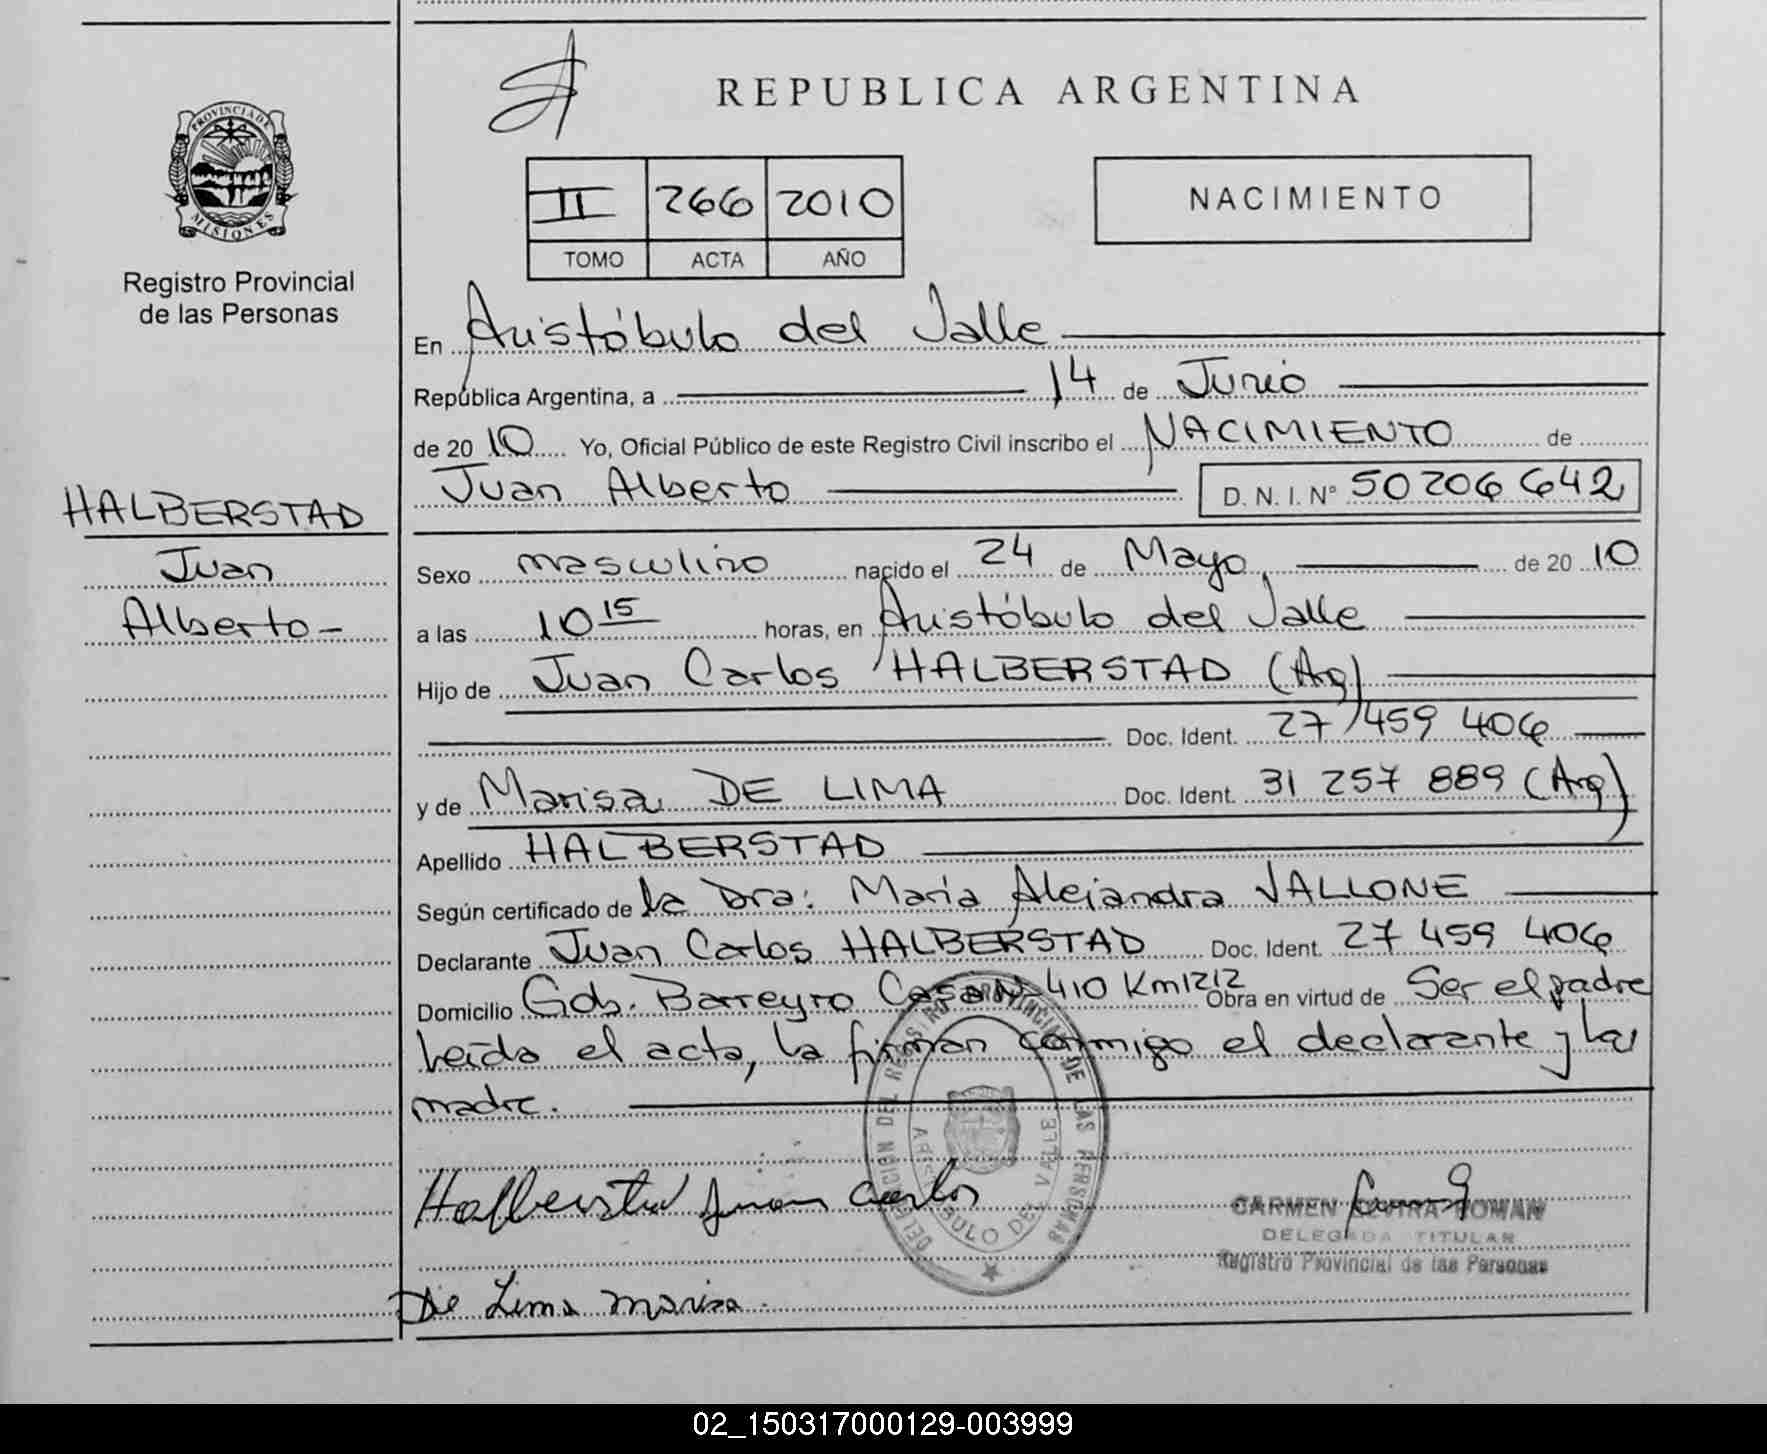 REPUBLICA ARGENTINA
PROVINCIA DE
MISIONES
Registro Provincial
de las Personas
II 266 2010
TOMO ACTA AÑO
NACIMIENTO
En Aristóbulo del Valle
República Argentina, a 14 de Junio
de 2010 Yo, Oficial Público de este Registro Civil inscribo el NACIMIENTO de
Juan Alberto D. N. I. Nº 50 206 642
HALBERSTAD
Juan
Alberto-
Sexo masculino nacido el 24 de Mayo, de 2010
a las 10 15 horas, en Aristóbulo del Valle
Hijo de Juan Carlos HALBERSTAD (Arg)
Doc. Ident. 27 459 406
y de Marisa DE LIMA Doc. Ident. 31 257 889 (Arg)
Apellido HALBERSTAD
Según certificado de la Dra: María Alejandra VALLONE
Declarante Juan Carlos HALBERSTAD Doc. Ident. 27 459 406
Domicilio Gob. Barreyro Casa Nº 410 Km 1212 Obra en virtud de Ser el padre
Leída el acta, la firman conmigo el declarante y la
madre.
DELEGACION DEL REGISTRO PROVINCIAL DE LAS PERSONAS
ARISTOBULO DEL VALLE
Halberstad Juan Carlos
CARMEN ROMAN
DELEGADA TITULAR
Registro Provincial de las Personas
De Lima Marisa.
02_150317000129-003999